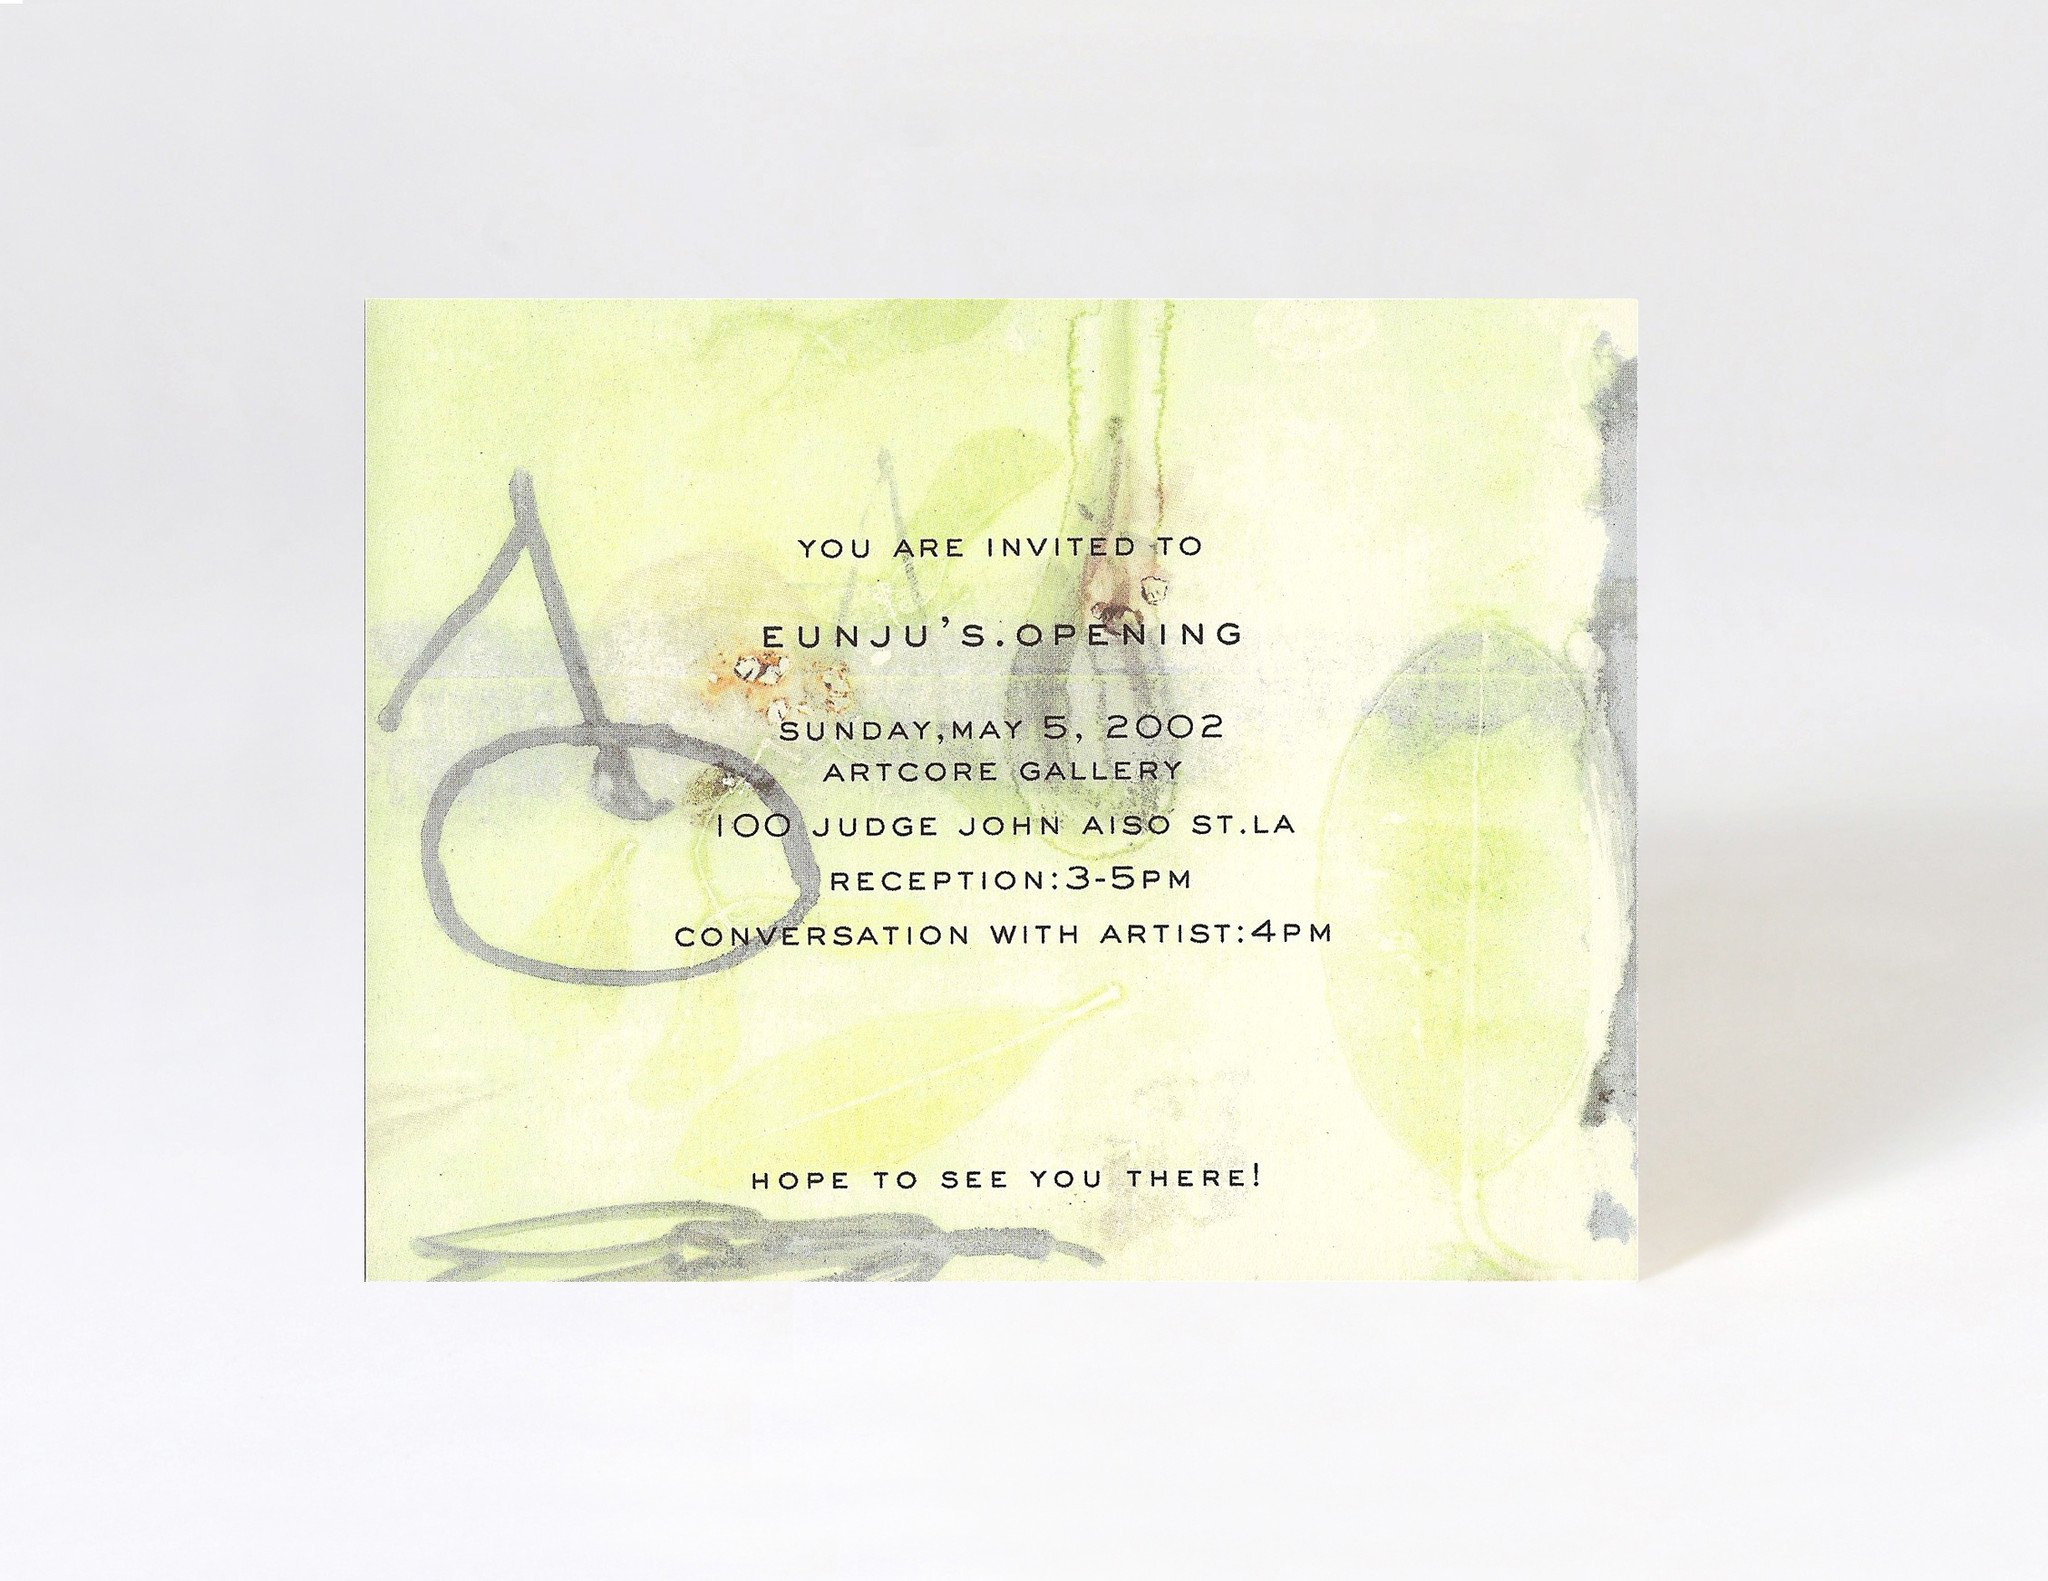 YOU ARE INVITED TO
EUNJU'S.OPENING
SUNDAY,MAY 5, 2002
ARTCORE GALLERY
100 JUDGE JOHN AISO ST.LA
RECEPTION:3-5PM
CONVERSATION WITH ARTIST:4PM
HOPE TO SEE YOU THERE!